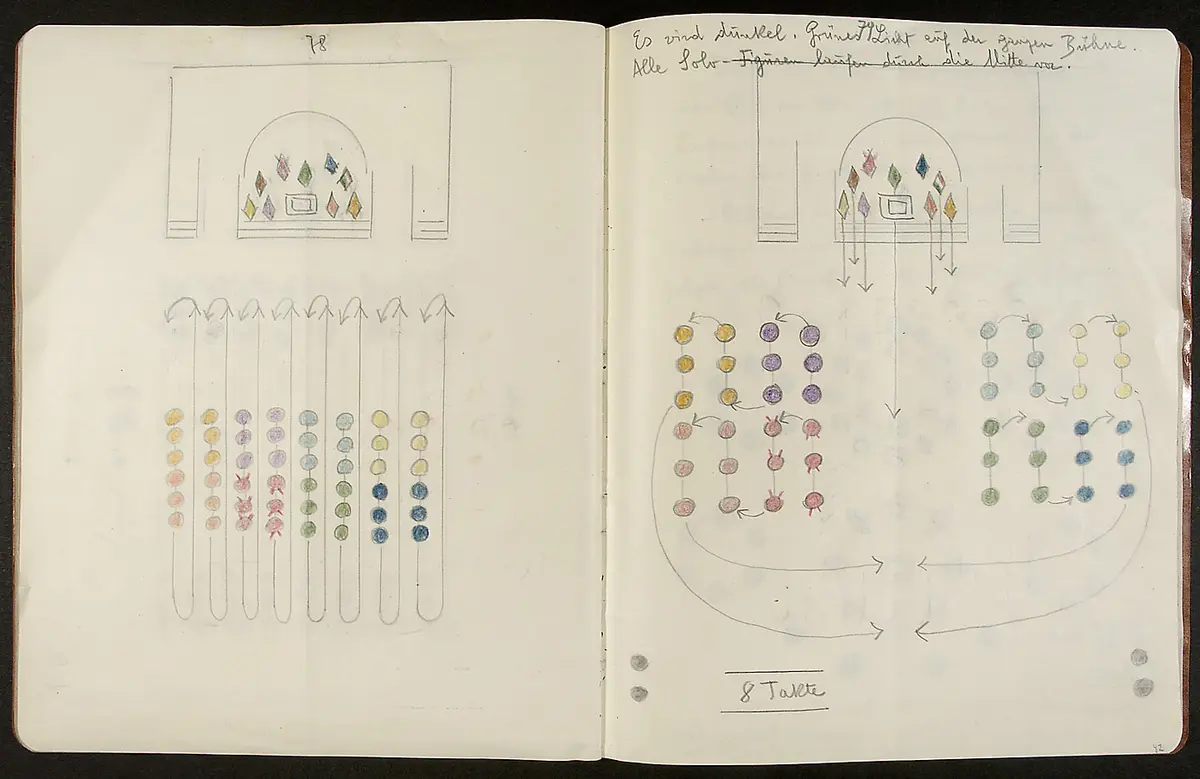 78
79
Es wird dunkel. Grünes Licht auf der ganzen Bühne.
Alle Solo-Figuren laufen durch die Mitte vor.
8 Takte
42